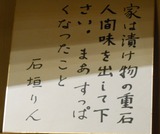 家は漬け物の重石
人間味を出して下
さい。まあすっぱ
くなったこと
石垣りん